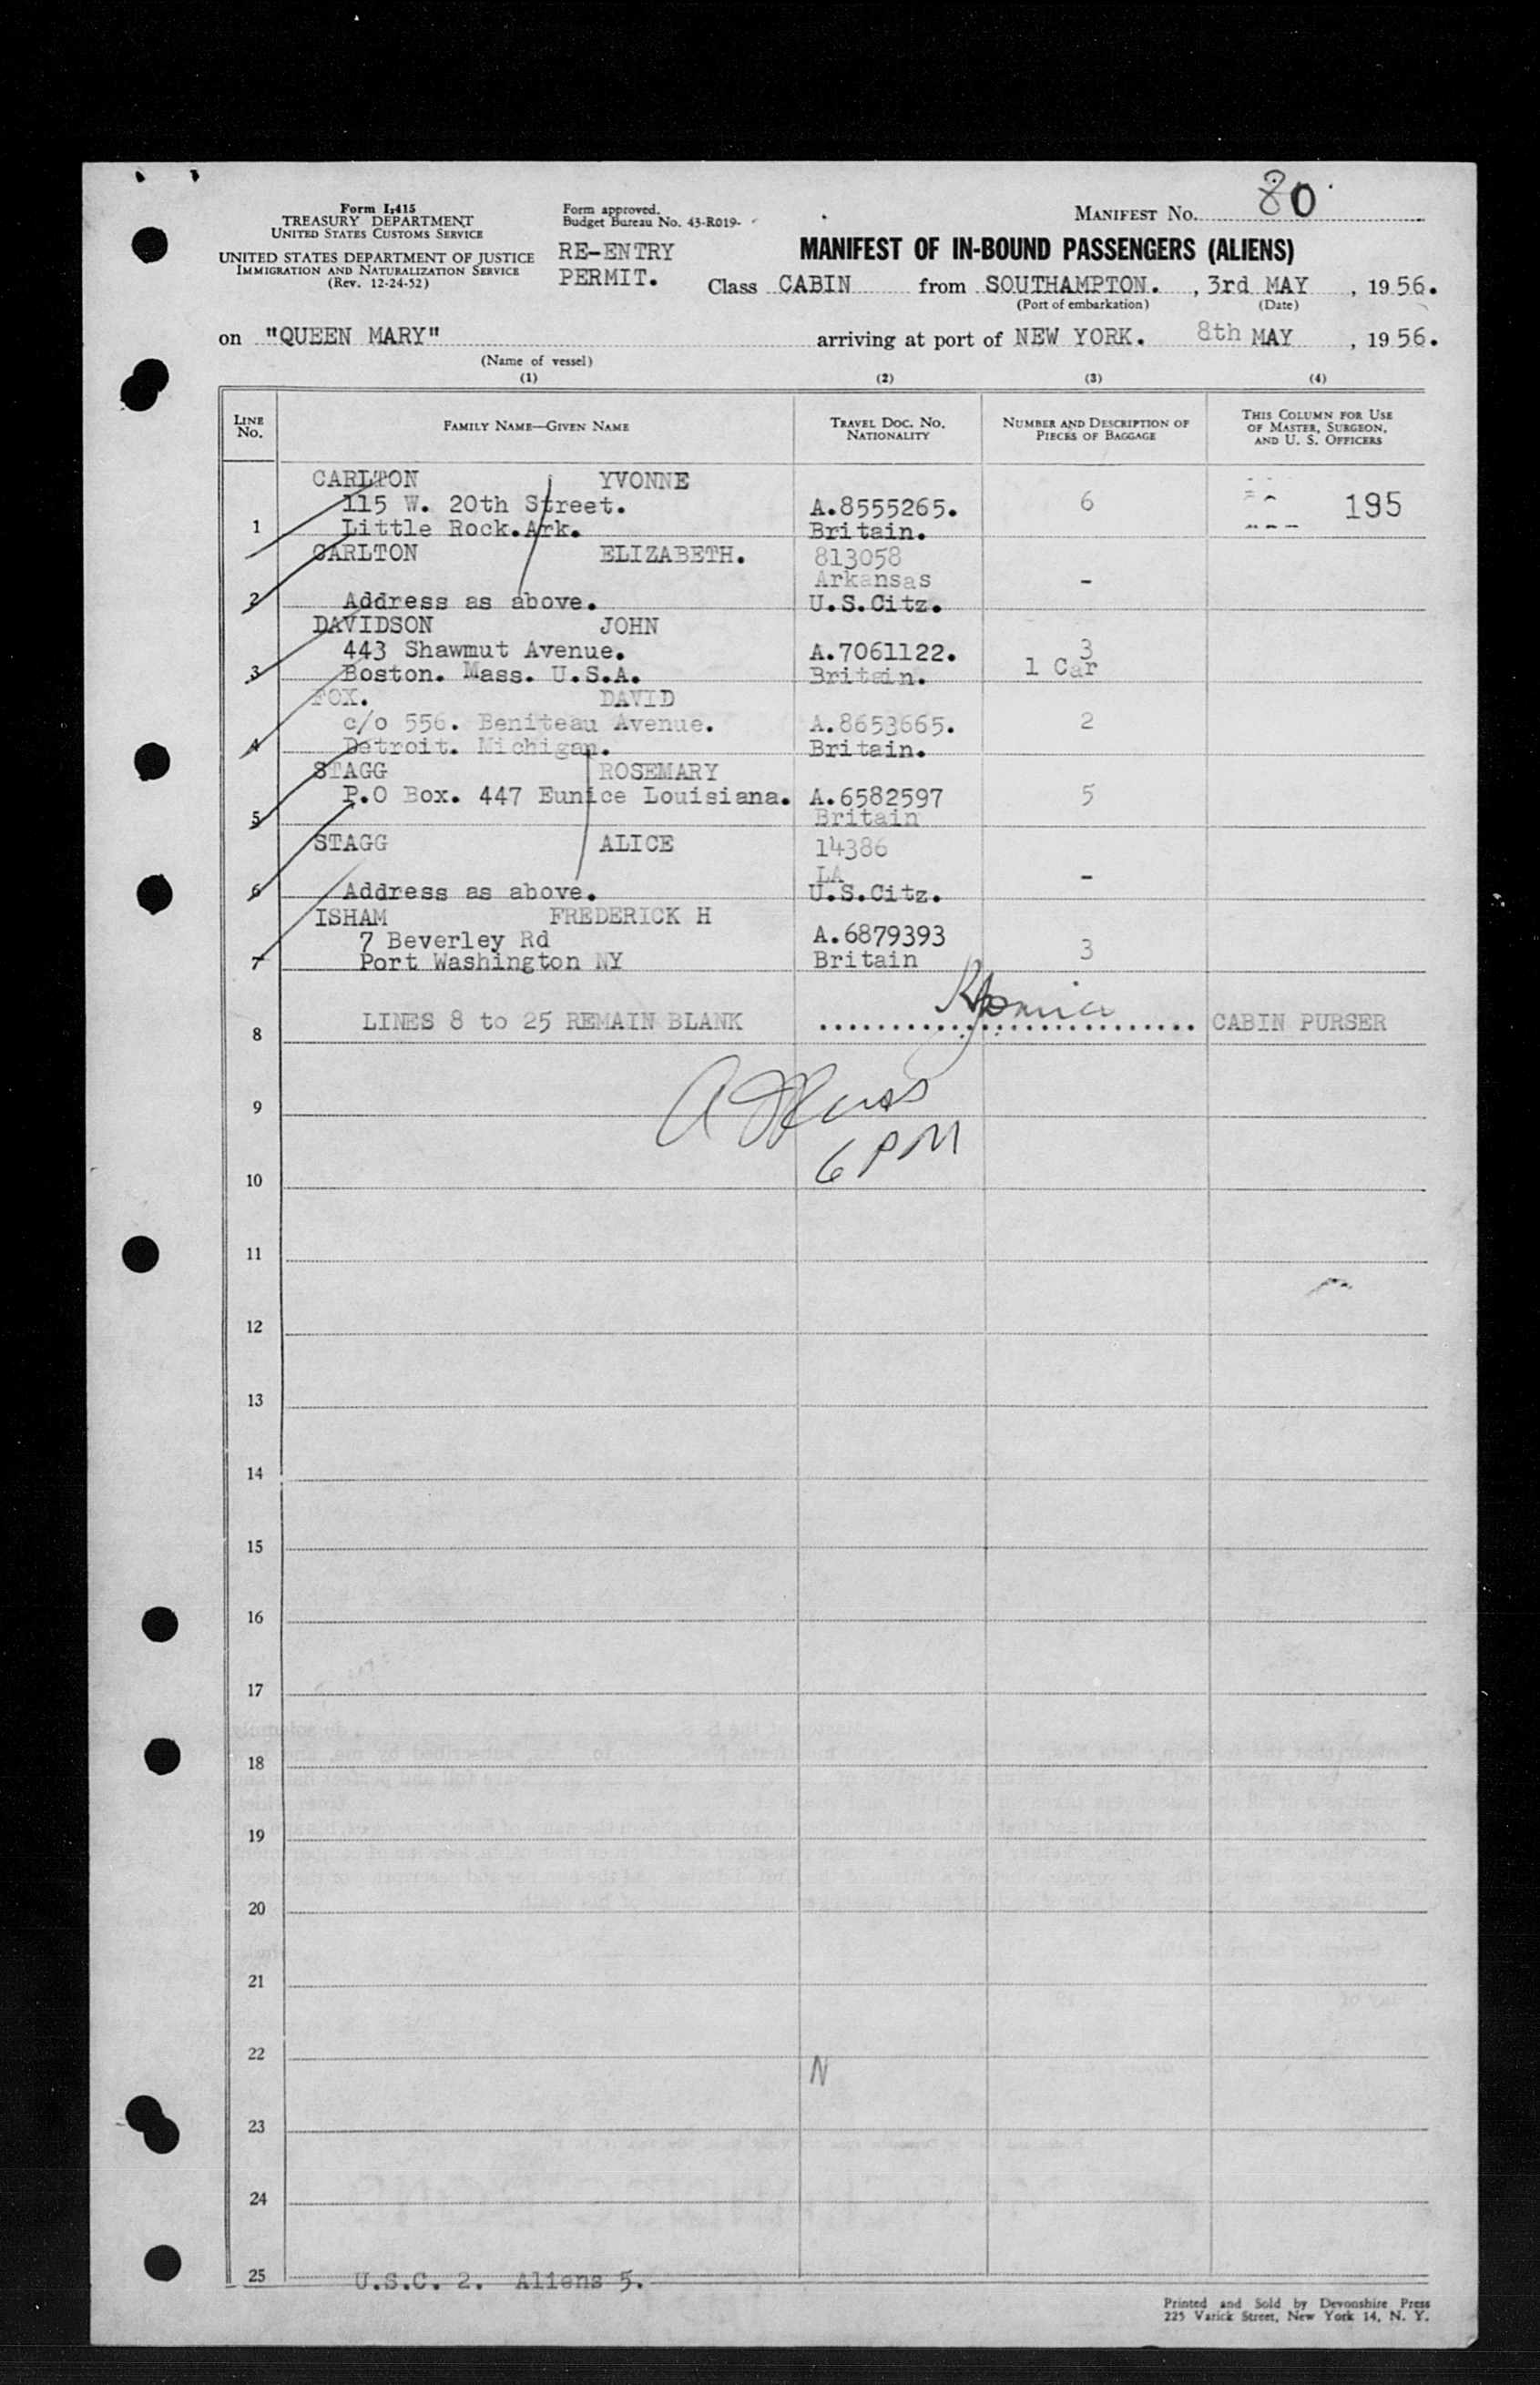 MANIFEST NO. 80
Form I-415
TREASURY DEPARTMENT
UNITED STATES CUSTOMS SERVICE
UNITED STATES DEPARTMENT OF JUSTICE
IMMIGRATION AND NATURALIZATION SERVICE
(Rev. 12-24-52)
Form approved.
Budget Bureau No. 43-R019-
RE-ENTRY
PERMIT.
MANIFEST OF IN-BOUND PASSENGERS (ALIENS)
Class CABIN from SOUTHAMPTON. , 3rd MAY , 1956.
(Port of embarkation) (Date)
on "QUEEN MARY" arriving at port of NEW YORK. 8th MAY , 1956.
(Name of vessel)
(1) (2) (3) (4)
LINE NO. FAMILY NAME—GIVEN NAME TRAVEL DOC. NO. NATIONALITY NUMBER AND DESCRIPTION OF PIECES OF BAGGAGE THIS COLUMN FOR USE OF MASTER, SURGEON, AND U. S. OFFICERS
CARLTON YVONNE
115 W. 20th Street. A.8555265. 6 195
1 Little Rock.Ark. Britain.
CARLTON ELIZABETH. 813058
Arkansas -
2 Address as above. U.S.Citz.
DAVIDSON JOHN
443 Shawmut Avenue. A.7061122. 3
3 Boston. Mass. U.S.A. Britain. 1 Car
FOX. DAVID
c/o 556. Beniteau Avenue. A.8653665. 2
4 Detroit. Michigan. Britain.
STAGG ROSEMARY
P.O Box. 447 Eunice Louisiana. A.6582597 5
5 Britain
STAGG ALICE 14386
LA -
6 Address as above. U.S.Citz.
ISHAM FREDERICK H
7 Beverley Rd A.6879393 3
7 Port Washington NY Britain
8 LINES 8 to 25 REMAIN BLANK CABIN PURSER
9
6 PM
10
11
12
13
14
15
16
17
18
19
20
21
22
N
23
24
25 U.S.C. 2. Aliens 5.
Printed and Sold by Devonshire Press
225 Varick Street, New York 14, N. Y.